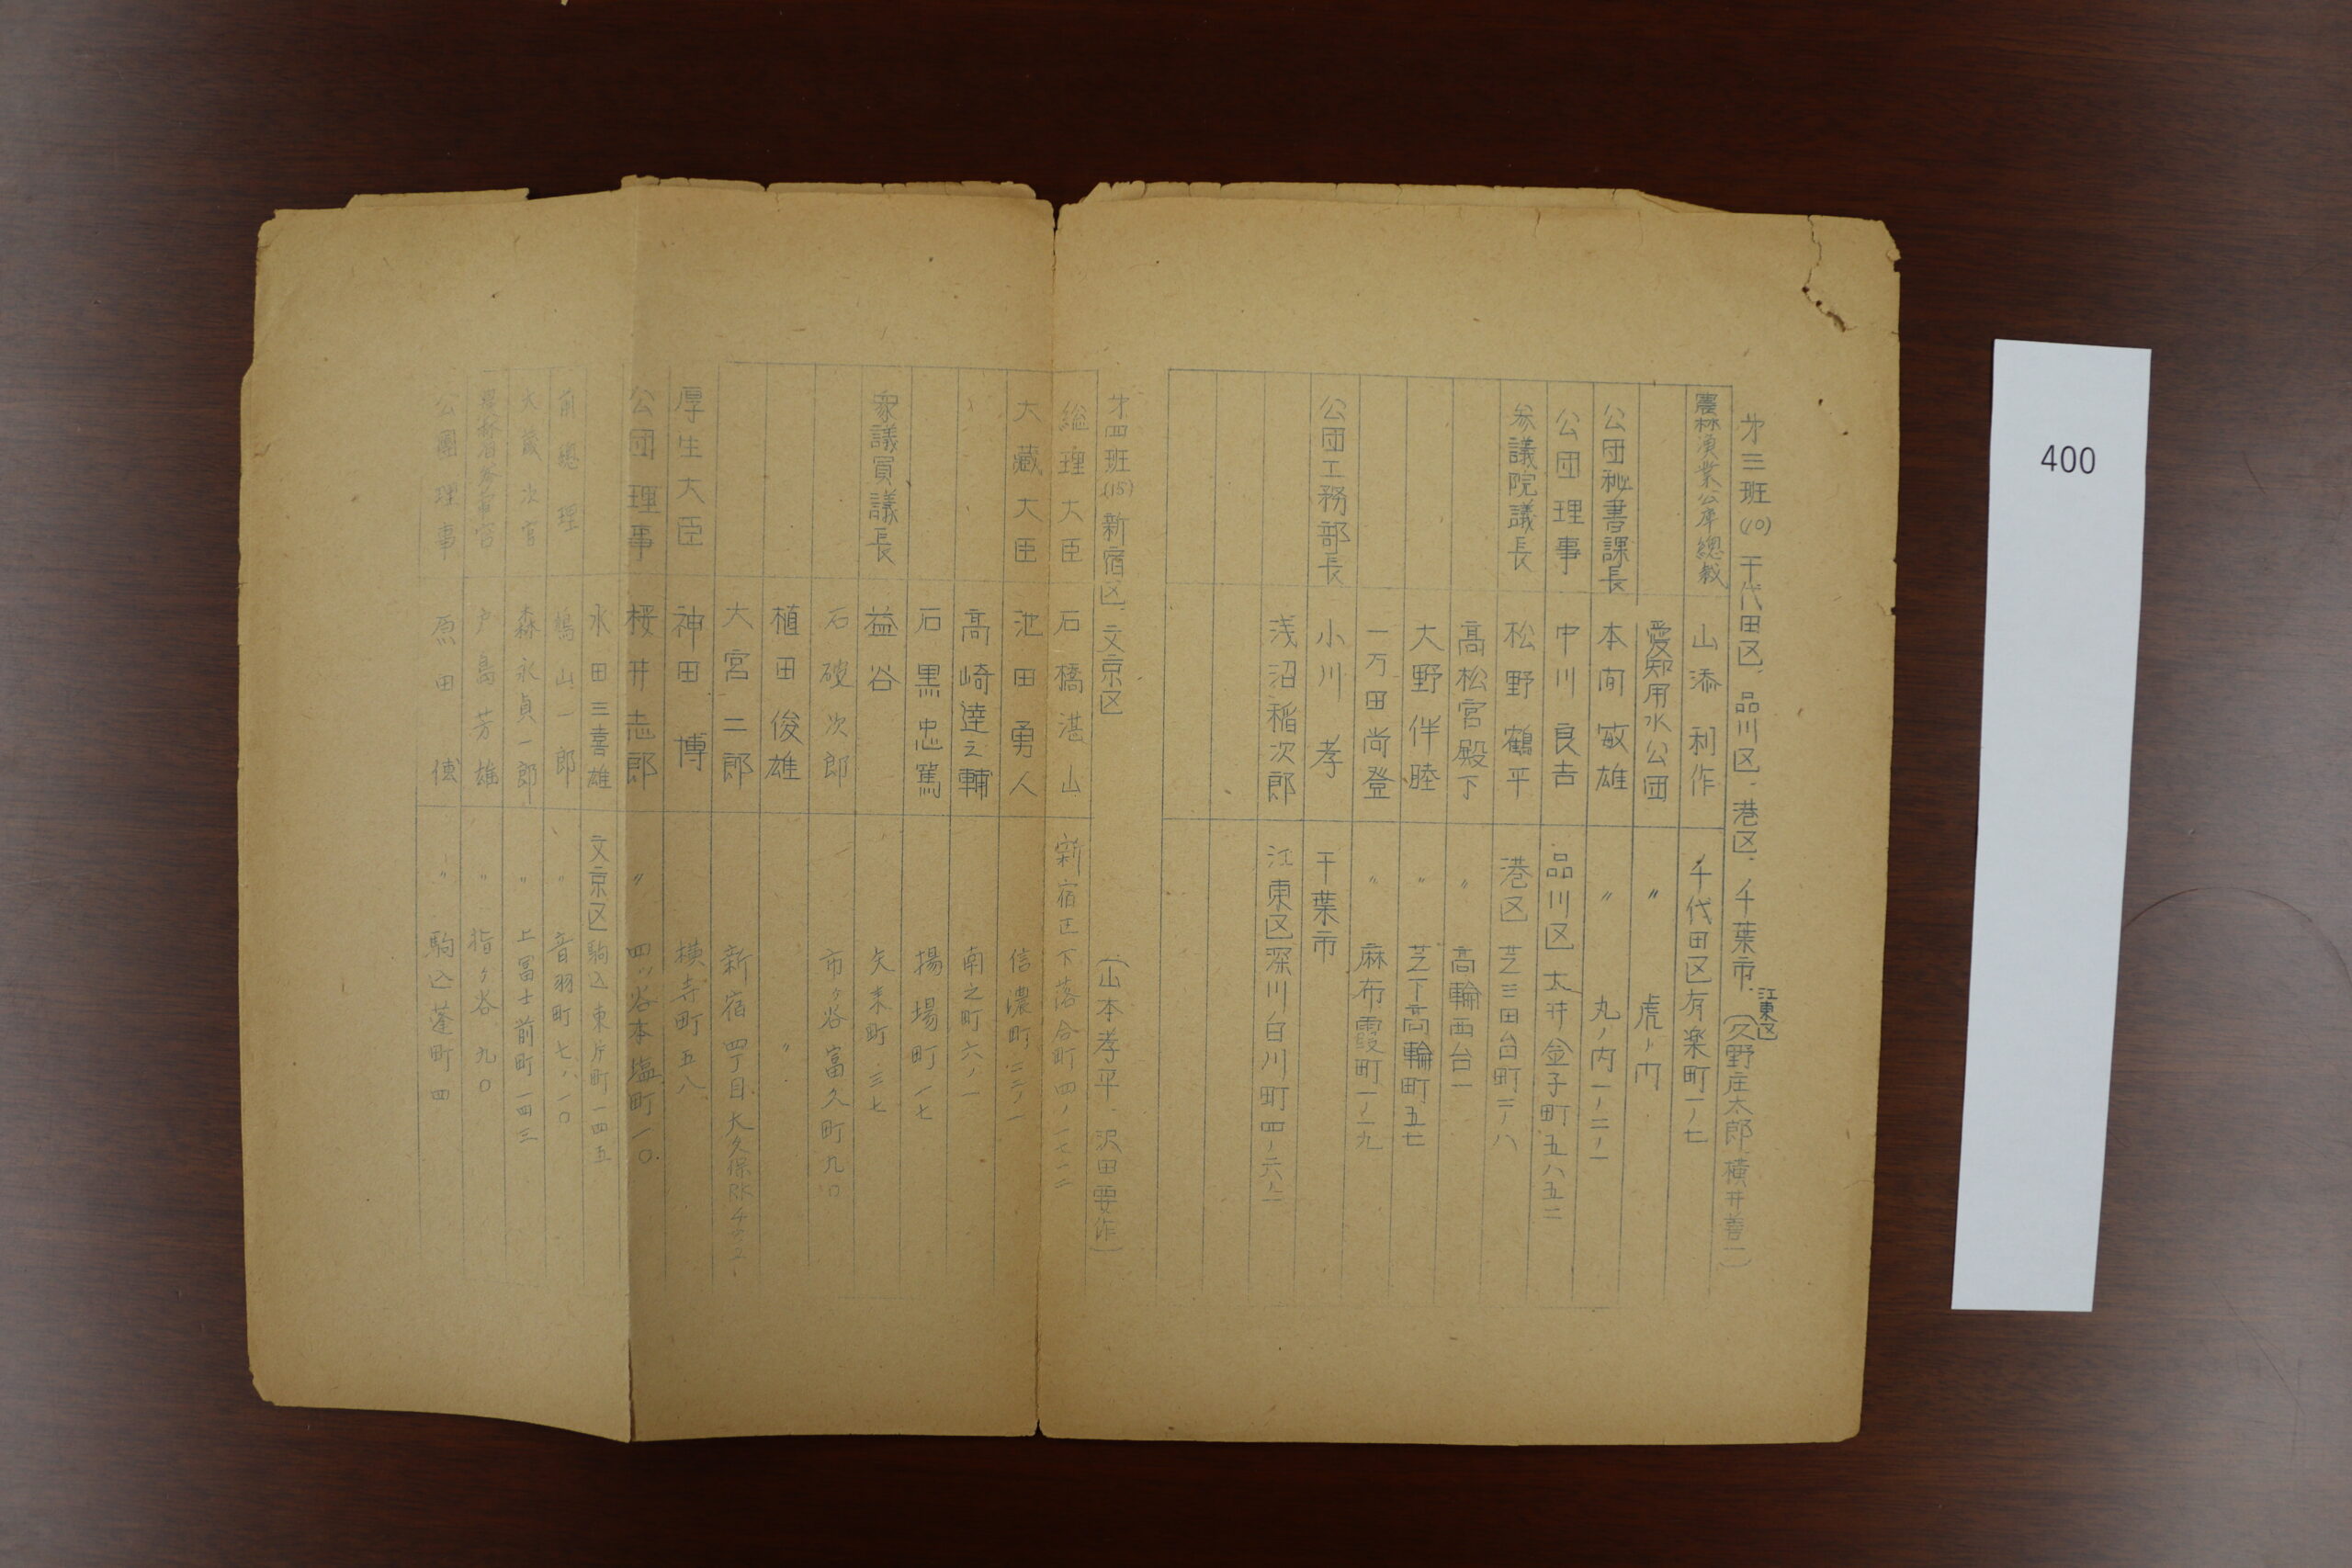 才三班(10) 千代田区、品川区、港区、千葉市、江東区 (久野庄太郎 横井善一)
農林漁業公庫總裁 山添利作 千代田区有楽町一ノ七
愛知用水公団 〃 虎ノ門
公団秘書課長 本間敏雄 〃 丸ノ内一ノ二ノ一
公団理事 中川良吉 品川区大井金子町五八五二
参議院議長 松野鶴平 港区芝三田台町二ノ八
高松宮殿下 〃 高輪西台一
大野伴睦 〃 芝下高輪町五七
一万田尚登 〃 麻布霞町一ノ一九
公団工務部長 小川孝 千葉市
浅沼稲次郎 江東区深川白川町四ノ六ノ二
才四班(15) 新宿区、文京区 (山本孝平、沢田要作)
総理大臣 石橋湛山 新宿区下落合町四ノ一七一二
大藏大臣 池田勇人 信濃町二三ノ一
高崎達之輔 南之町六ノ一
石黒忠篤 揚場町一七
衆議員議長 益谷 矢来町三七
石破次郎 市ヶ谷富久町九〇
植田俊雄 〃
大宮二郎 新宿四丁目大久保RK4の2
厚生大臣 神田博 横寺町五八
公団理事 桜井志郎 〃 四ッ谷本塩町一〇
水田三喜雄 文京区駒込東片町一四五
前總理 鳩山一郎 〃 音羽町七ノ一〇
大蔵次官 森永貞一郎 〃 上富士前町一四三
戸島芳雄 〃 指ヶ谷九〇
公團理事 原田 〃 駒込蓬町四
400